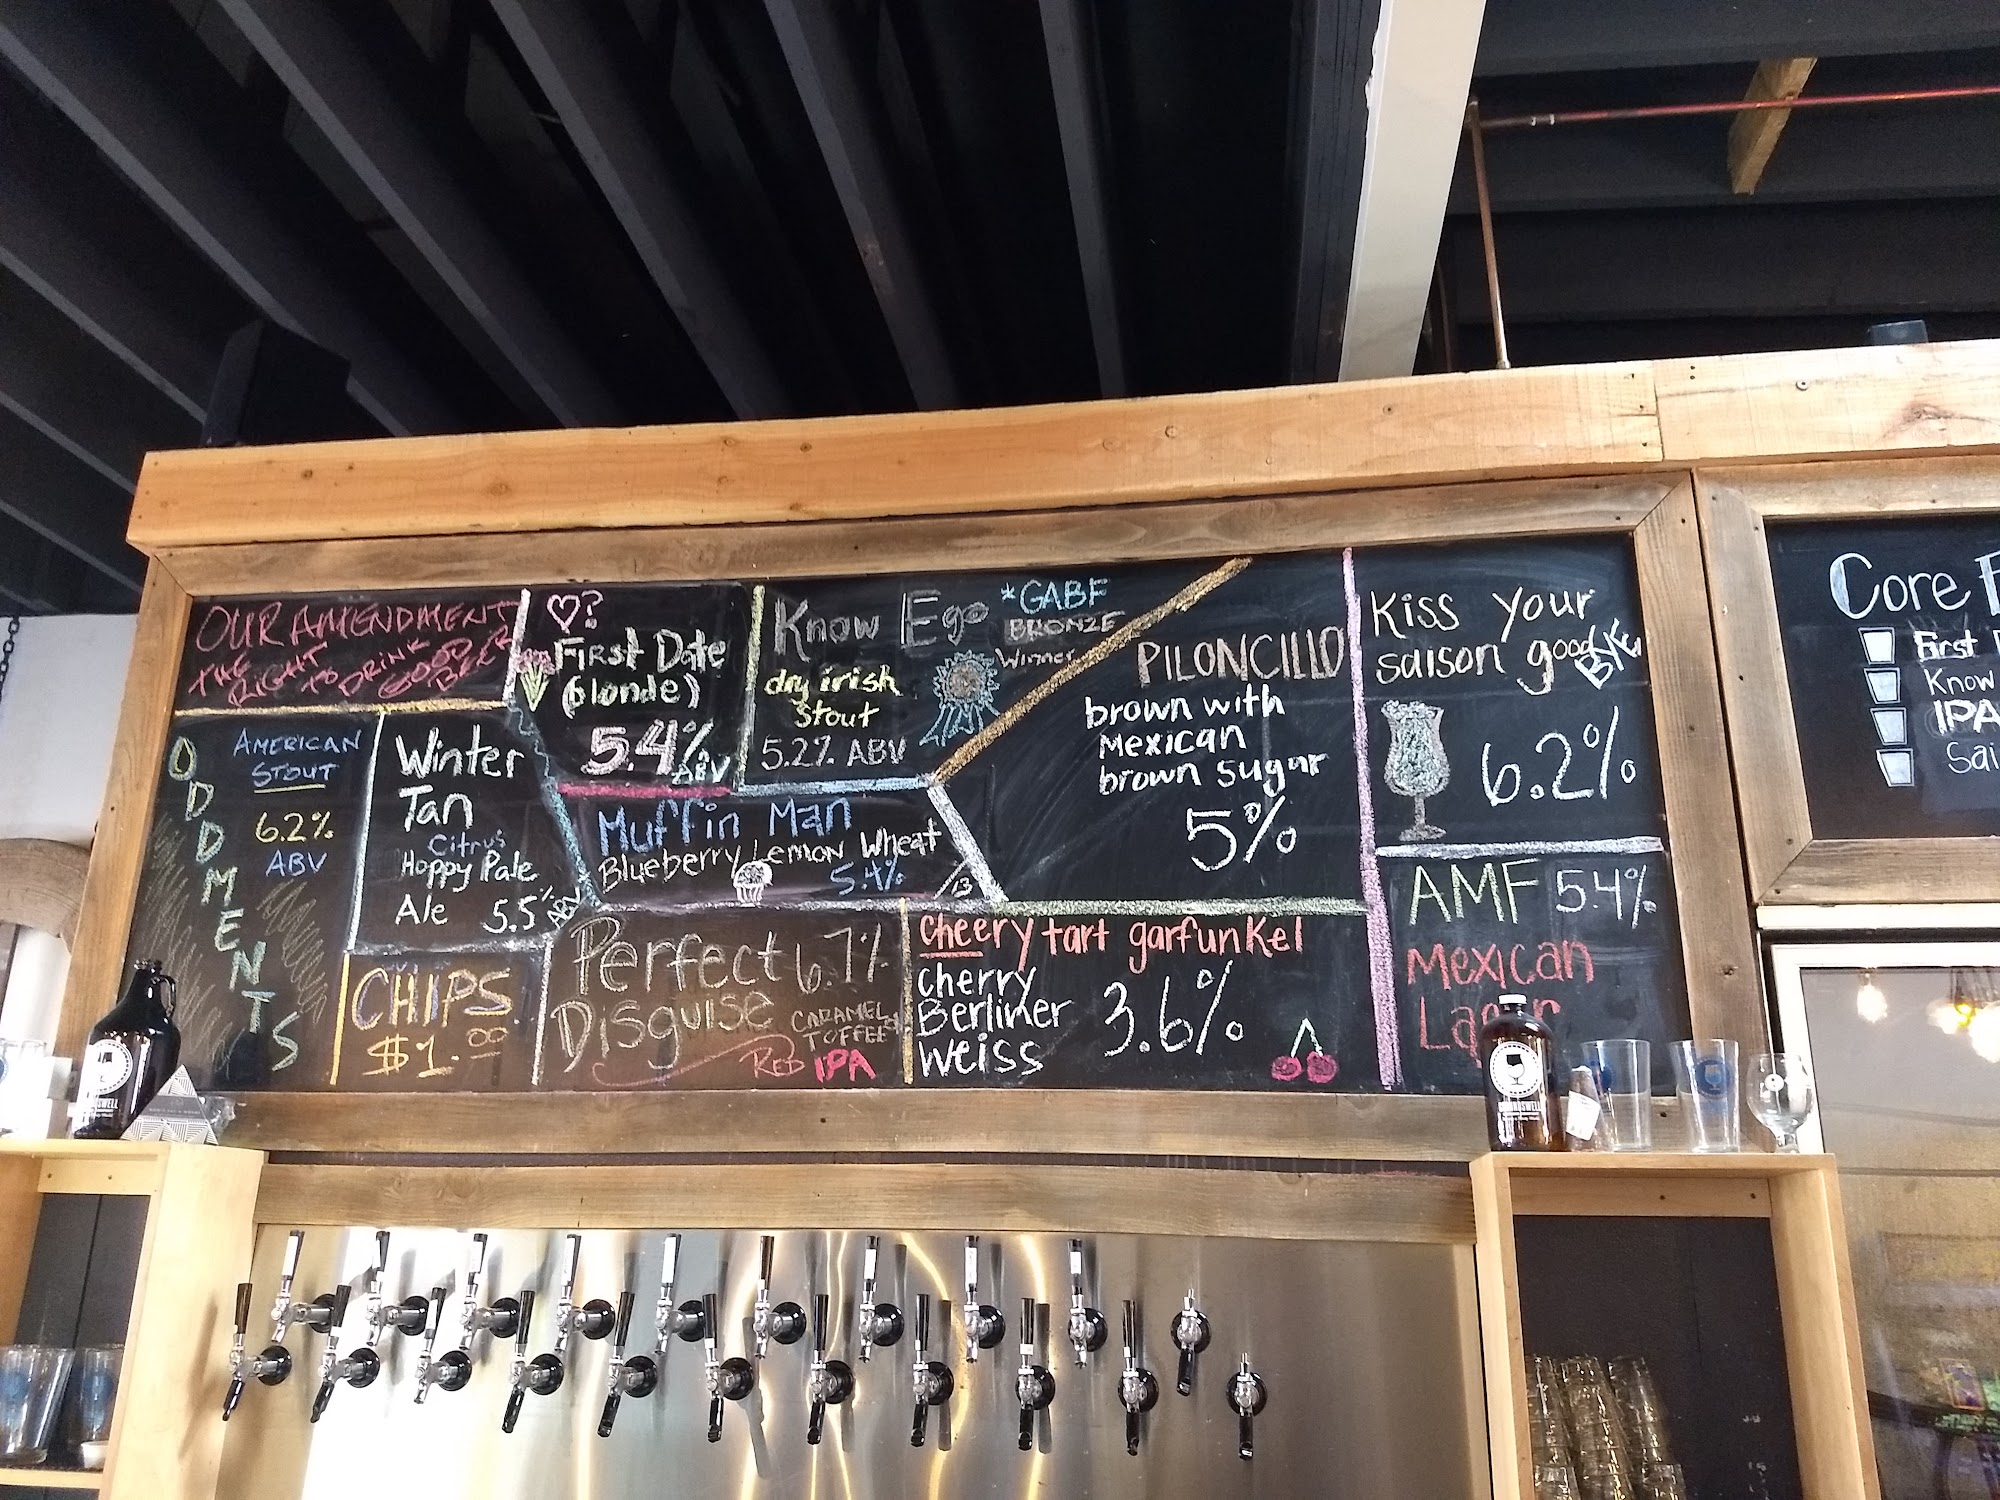 OUR AMENDMENT
THE RIGHT
TO DRINK
GOOD
BEER
ODDMENTS
AMERICAN
STOUT
6.2%
ABV
Winter
Tan
Citrus
Hoppy Pale
Ale 5.5% ABV
CHIPS
$1.00
♡?
First Date
(blonde)
5.4%
ABV
Know Ego
*GABF
BRONZE
Winner
dry irish
stout
5.2% ABV
Muffin Man
Blueberry Lemon Wheat
5.4%
Perfect 6.7%
Disguise
CARAMEL
TOFFEE
RED IPA
PILONCILLO
brown with
Mexican
brown sugar
5%
cheery tart garfunkel
cherry
Berliner
weiss
3.6%
Kiss your
saison good
BYE
6.2%
AMF 5.4%
Mexican
Lager
Core
First
Know
IPA
Sai